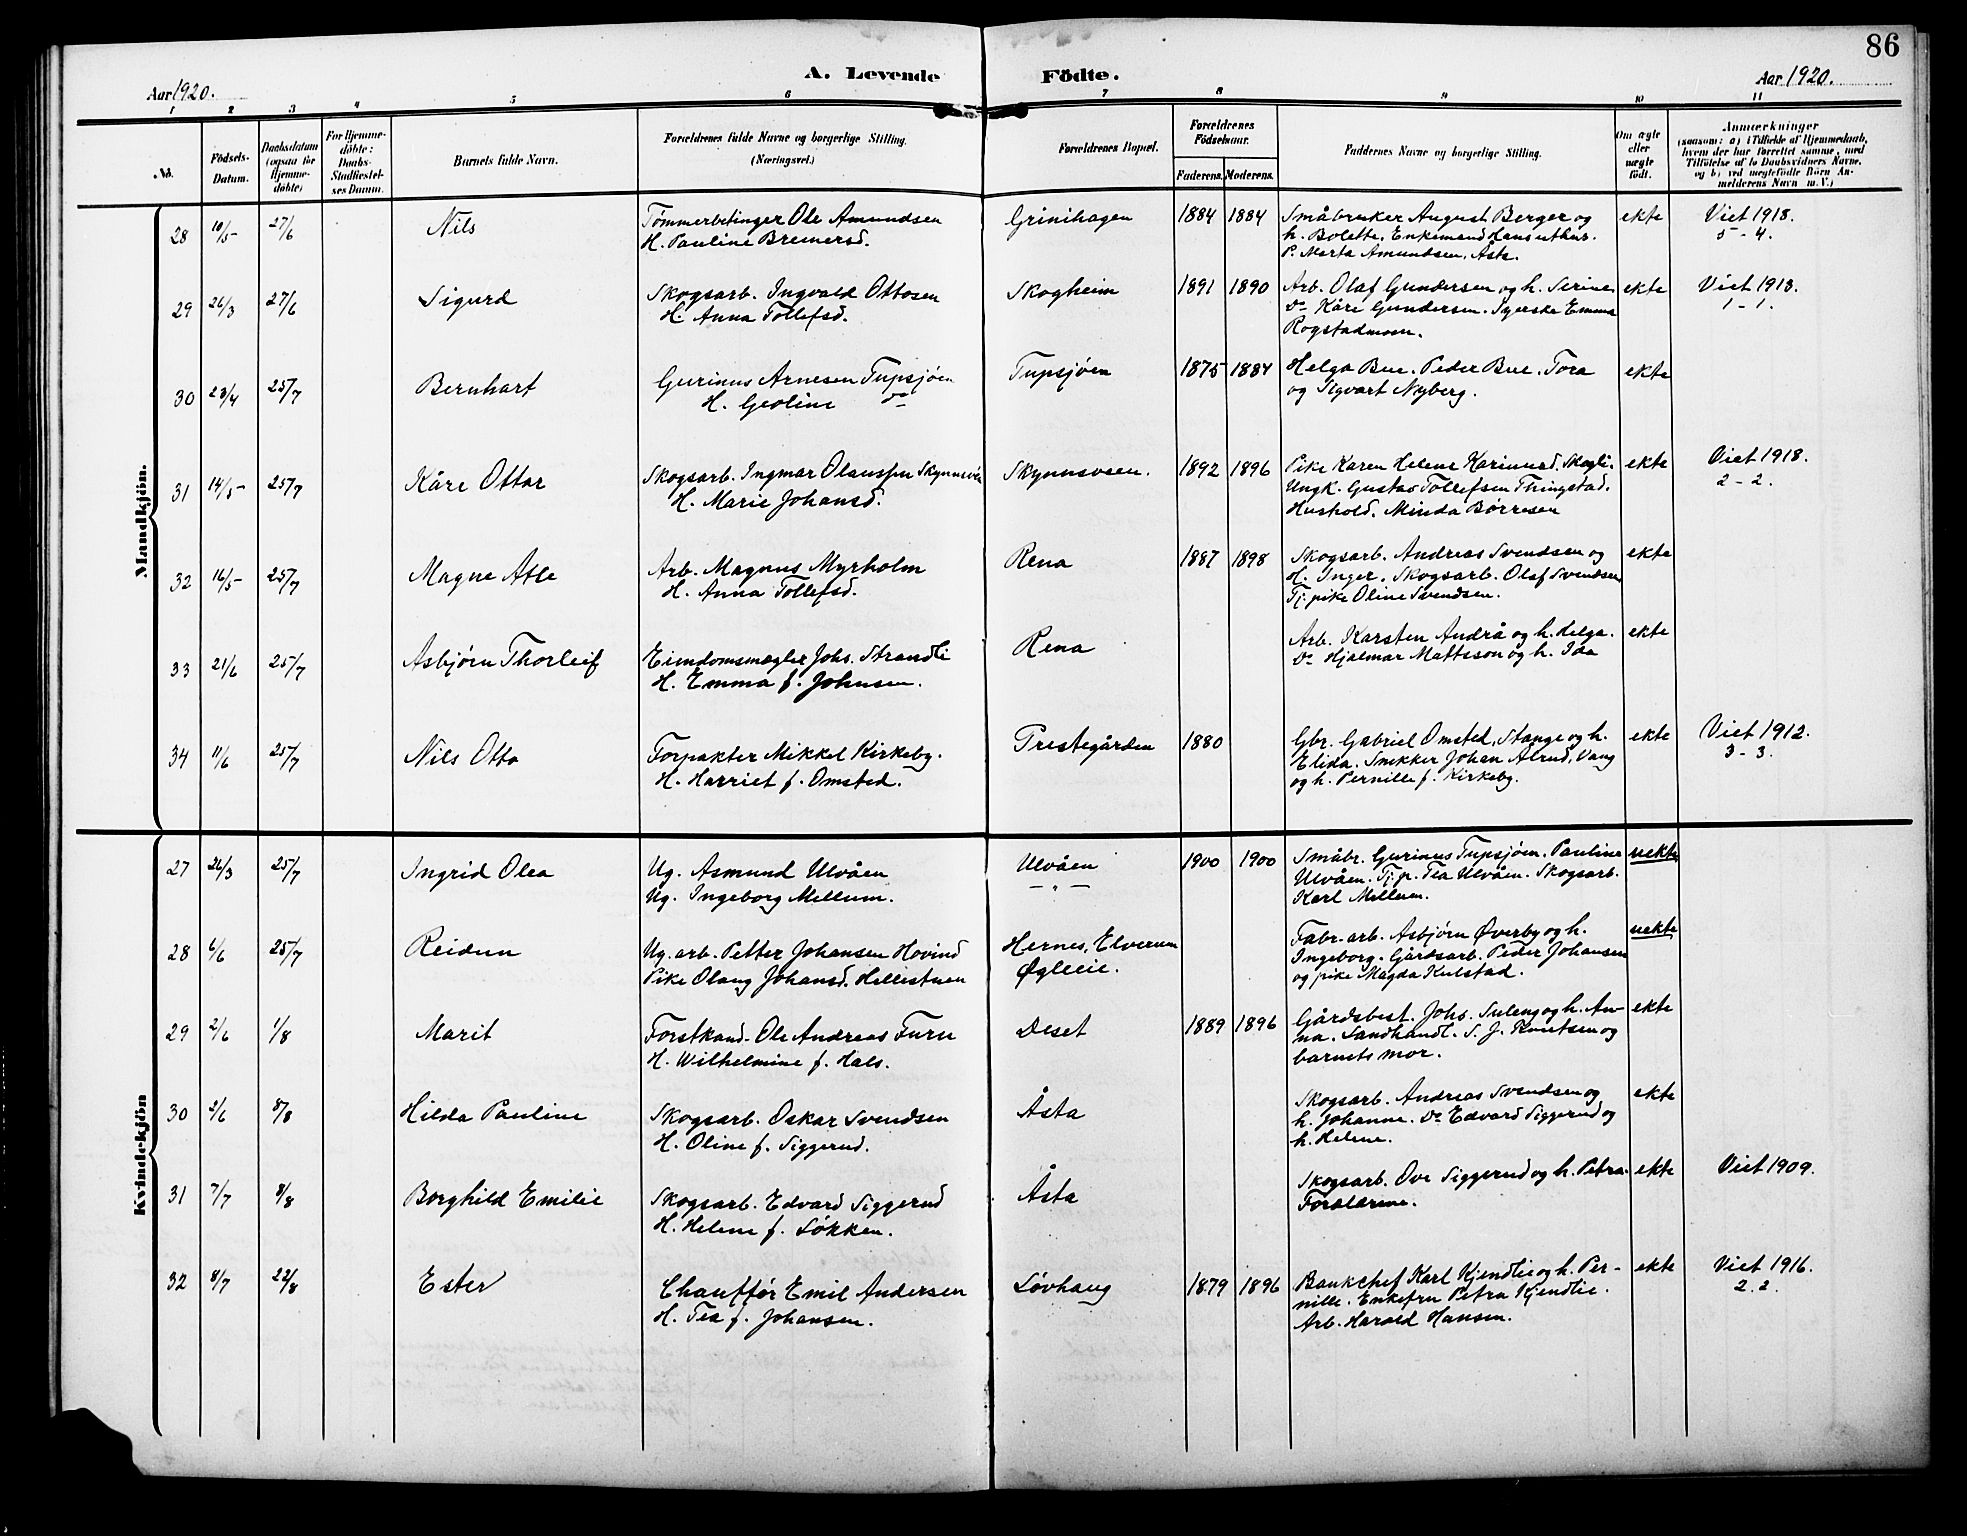 86
A. Levende Födte.
Aar 1920.
Aar 1920.
1 2 3 4 5 6 7 8 9 10 11
No.
Födsels-Datum.
Daabsdatum (ogsaa for Hjemme-döbte)
For Hjemme-döbte: Daabs-Stadfæstel-ses Datum.
Barnets fulde Navn.
Forældrenes fulde Navne og borgerlige Stilling. (Næringsvei.)
Forældrenes Bopæl.
Forældrenes Födselsaar.
Faderens. Moderens.
Faddernes Navne og borgerlige Stilling.
Om ægte eller uægte födt.
Anmærkninger
(saasom: a) i Tilfælde af Hjemmedaab, hvem der har forrettet samme, med Tilföielse af to Daabsvidners Navne, og b) ved uægtefödte Börn An-melderens Navn m. V.)
Mandkjön.
28 10/5 27/6 Nils Tømmerbetinger Ole Amundsen Grinihagen 1884 1884 Småbruker August Berger og ekte Viet 1918.
H. Pauline Bremersd. h. Bolette. Enkemand Hans 5 - 4.
P. Marta Amundsen, Åsta.
29 26/3 27/6 Sigurd Skogsarb. Ingvald Ottosen Skogheim 1891 1890 Arb. Olaf Gundersen og h. Serine ekte Viet 1913.
H. Anna Tollefsd. Do Kåre Gundersen. Syerske Emma 1 - 1.
Rogstadmoen.
30 23/4 25/7 Bernhart Gurinus Arnesen Tupsjøen Tupsjøen 1875 1884 Helga Bue. Peder Bue. Tora ekte
H. Geoline do og Sigvart Nyberg.
31 14/5 25/7 Kåre Ottar Skogsarb. Ingmar Olaussen Skynnsveen Skynnsveen. 1892 1896 Pike Karen Helene Karinusd. Skogli. ekte Viet 1918.
H. Marie Johansd. Ungk. Gustav Tollefsen Thingstad. 2 - 2.
Hushold. Minda Børresen
32 16/5 25/7 Magne Atle Arb. Magnus Myrholm Rena 1887 1898 Skogsarb. Andreas Svendsen og ekte
H. Anna Tollefsd. H. Inger. Skogsarb. Olaf Svendsen
Tj. pike Oline Svendsen.
33 21/6 25/7 Asbjørn Thorleif Eiendomsmægler Johs. Strandli Rena Arb. Karsten Andrå og h. Helga. ekte
H. Emma f. Johnsen. Do Hjalmar Mattsson og h. Ida
34 11/6 25/7 Nils Otto Forpakter Mikkel Kirkeby. Prestegården 1880 Gbr. Gabriel Omsted, Stange og h. ekte Viet 1912.
H. Harriet f. Omsted. Elida. Snikker Johan Alrud, Vang 3 - 3.
og h. Pernille f. Kirkeby.
Kvindekjön
27 26/3 25/7 Ingrid Olea Ug. Asmund Ulvåen Ulvåen 1900 1900 Småbr. Gurinus Tupsjøen. Pauline uekte
Ug. Ingeborg Mellum. — " — Ulvåen. Tj. p. Tea Ulvåen. Skogsarb.
Karl Mellum.
28 6/6 25/7 Reidun Ug. arb. Petter Johansen Hovind Hernes, Elverum Fabr. arb. Asbjørn Øverby og h. uekte
Pike Olaug Johansd. Hellistuen Øgleie. Ingeborg. Gårdsarb. Peder Johansen
og pike Magda Kulstad.
29 2/6 1/8 Marit Forstkand. Ole Andreas Furu Deset 1889 1896 Gårdsbest. Johs. Suleng og h. An- ekte
H. Wilhelmine f. Hals. na. Landhandl. S. J. Knutsen og
barnets mor.
30 2/6 8/8 Hilda Pauline Skogsarb. Oskar Svendsen Åsta Skogsarb. Andreas Svendsen og ekte
H. Oline f. Siggerud. h. Johanne. Do Edvard Siggerud og
h. Helene.
31 7/7 8/8 Borghild Emilie Skogsarb. Edvard Siggerud Åsta Skogsarb. Ove Siggerud og h. Petra ekte Viet 1909.
H. Helene f. Løkken. Forældrene.
32 8/7 22/8 Ester Chauffør Emil Andersen Løvhaug 1879 1896 Bankchef Karl Kjendlie og h. Per- ekte Viet 1916.
H. Tea f. Johansen. nille. Enkefru Petra Kjendlie. 2. 2.
Arb. Harald Hansen.